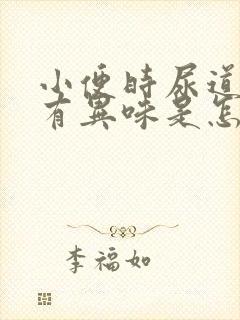 小便時尿道
有異味是怎
李福如